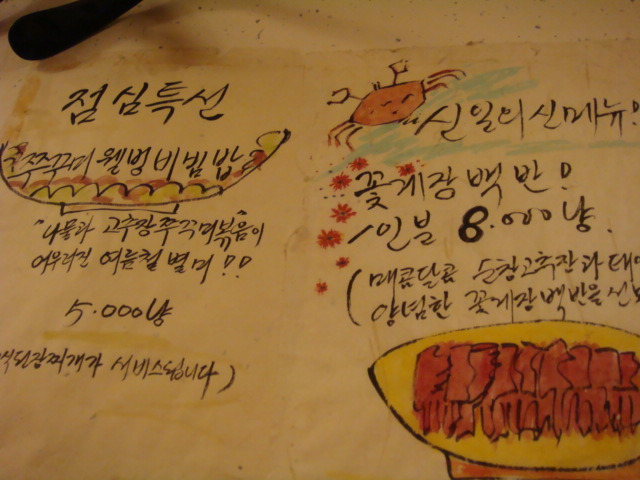 점심특선
쭈꾸미 웰빙비빔밥
"나물과 고추장쭈꾸미볶음"이
어우러진 여름철 별미!!
5.000냥
된장찌개가 서비스됩니다)
신일의 신메뉴!
꽃게장백반!
1인분 8.000냥.
(매콤달콤 순창고추장과
양념한 꽃게장백반을